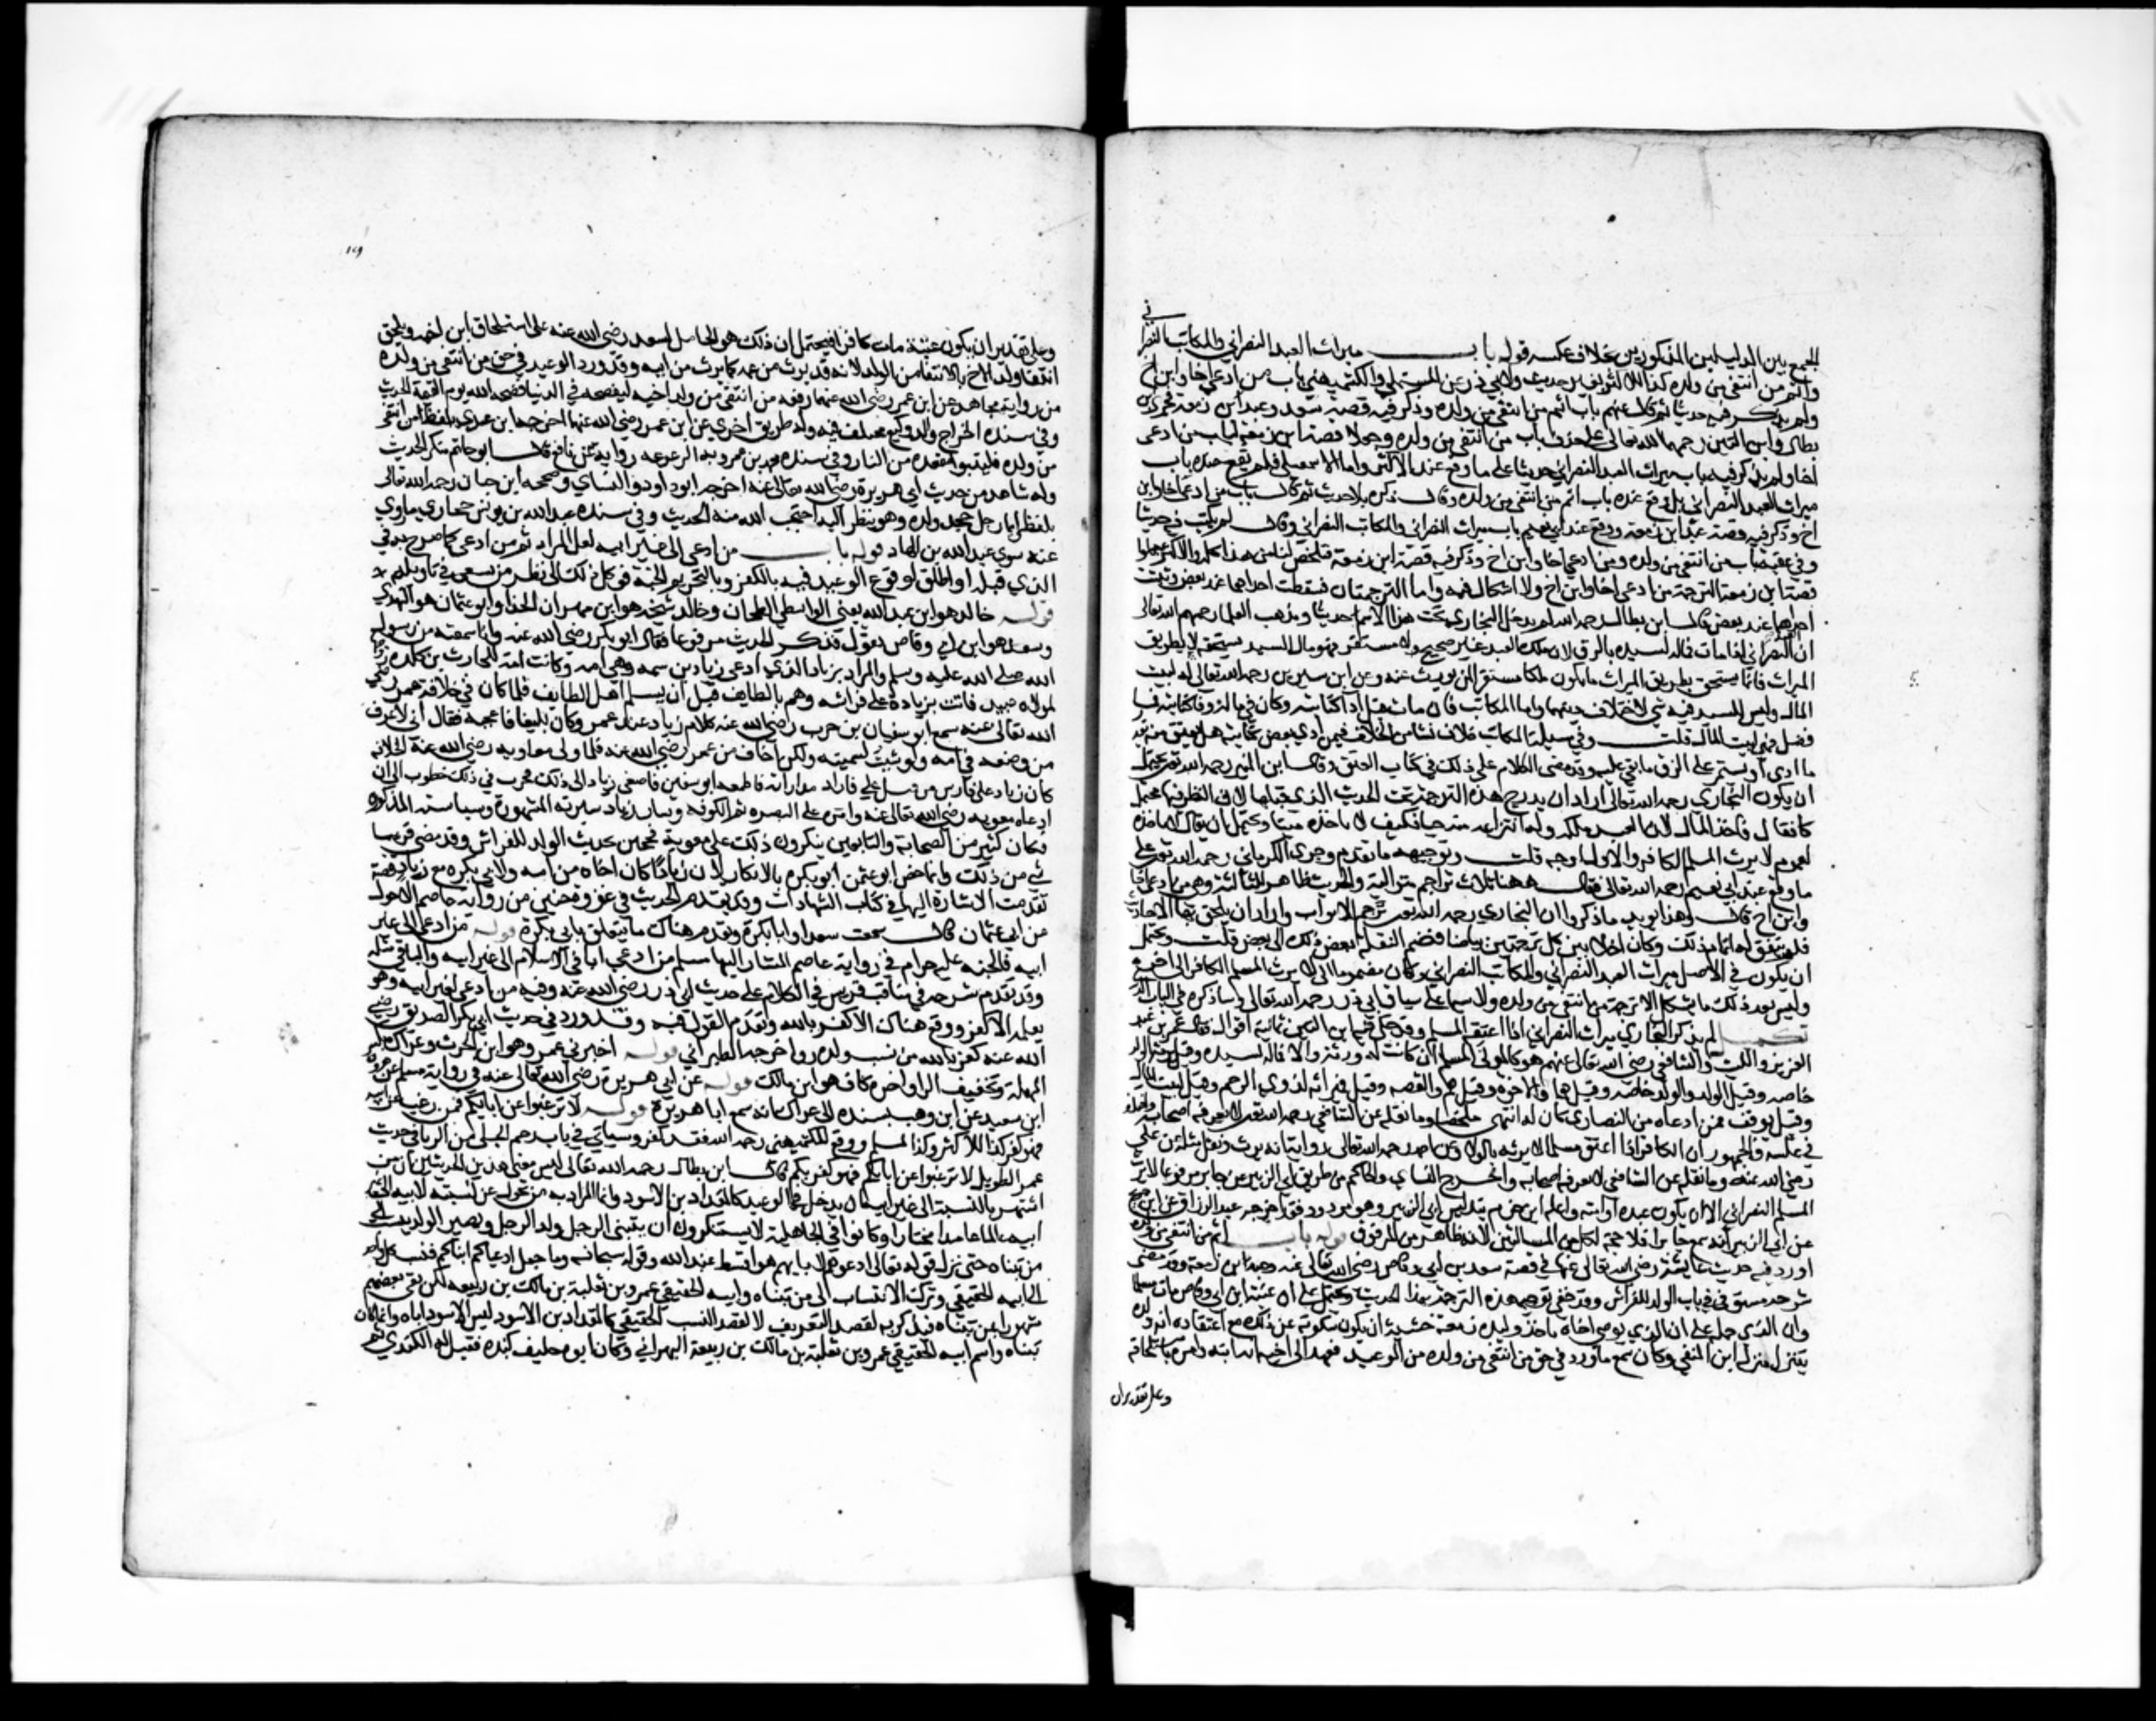 الجمع بين الدليلين المذكورين بخلاف عكسه قوله باب ميراث العبد النصراني والمكاتب النصراني
واثم من انتفى من ولده كذا للاكثر بغير حديث ولابي ذر عن المستملي والكشميهني باب من ادعى اخا او ابن اخ
ولم يذكر فيه حديثا ثم قال عنهم باب اثم من انتفى من ولده وذكر فيه قصة سعد وعبد بن زمعة فجرى ابن
بطال وابن التين رحمهما الله تعالى على حذف باب من انتفى من ولده وجعلا قصة ابن زمعة لباب من ادعى
اخا ولم يذكر فيه باب ميراث العبد النصراني حديثا على ما وقع عند الاكثر واما الاسمعيلي فلم يقع عنده باب
ميراث العبد النصراني بل وقع عنده باب اثم من انتفى من ولده وقال ذكره بلا حديث ثم قال باب من ادعى اخا او ابن
اخ وذكر فيه قصة عبد ابن زمعة ووقع عند ابي نعيم باب ميراث النصراني والمكاتب النصراني وقال لم يكتب فيه حديثا
وفي عقبه باب من انتفى من ولده ومن ادعى اخا او ابن اخ وذكر فيه قصة ابن زمعة فتلخص لنا من هذا كله ان الاكثر جعلوا
قصة ابن زمعة لترجمة من ادعى اخا او ابن اخ ولا اشكال فيه واما الترجمتان فسقطت احداهما عند بعض وثبتت
احداهما عند بعض قال ابن بطال رحمه الله لم يدخل البخاري تحت هذا الاسم حديثا ومذهب العلما رحمهم الله تعالى
ان النصراني اذا مات فماله لسيده بالرق لان ملك العبد غير صحيح ولا مستقر فهو مال السيد يستحقه لا بطريق
الميراث فانما يستحق بطريق الميراث ما يكون ملكا مستقرا لمن يورث عنه وعن ابن سيرين رحمه الله تعالى ماله لبيت
المال وليس للسيد فيه شي لاختلاف دينهما واما المكاتب فان مات قبل ادآ كتابته وكان في ماله وفآ لكتابته فما
فضل فهو لبيت المال قلت وفي مسيلة المكاتب خلاف نشا من الخلاف فيمن ادى بعض كتابته هل يعتق منه بقدر
ما ادى او يستمر على الرق ما بقي عليه وقد مضى الكلام على ذلك في كتاب العتق وقال ابن المنير رحمه الله تعالى يحتمل
ان يكون البخاري رحمه الله تعالى اراد ان يدرج هذه الترجمة تحت الحديث الذي قبلها لان النظر فيها محتمل
كان يقال ياخذ المال لان العبد ملكه وله انتزاعه منه حيا فكيف لا ياخذه ميتا ويحتمل ان يقال لا ياخذه
لعموم لا يرث المسلم الكافر والاول اوجه قلت وتوجيهه ما تقدم وجرى الكرماني رحمه الله تعالى على
ما وقع عند ابي نعيم رحمه الله تعالى فقال ههنا ثلاث تراجم متوالية والحديث ظاهر للثالثة وهي من ادعى اخا
وابن اخ قال وهذا يويد ما ذكروا ان البخاري رحمه الله تعالى ترجم الابواب واراد ان يلحق بها الاحاديث
فلم يتفق له اتمام ذلك وكان اخلا بين كل ترجمتين بياضا فضم النقلة بعض ذلك الى بعض قلت ويحتمل
ان يكون في الاصل ميراث العبد النصراني والمكاتب النصراني وكان مضموما الى لا يرث المسلم الكافر الى اخره
وليس بعد ذلك ما يشكل الا ترجمة من انتفى من ولده ولا سيما على سياق ابي ذر رحمه الله تعالى وساذكره في الباب الذي
تكميل لم يذكر البخاري ميراث النصراني اذا اعتقه المسلم وقد حكى فيه ابن التين ثمانية اقوال فقال عمر بن عبد
العزيز والليث والشافعي رضي الله تعالى عنهم هو كالمولى المسلم ان كانت له ورثة والا فماله لسيده وقيل يرثه الولد
خاصة وقيل الولد والوالد خاصة وقيل هما والاخوة وقيل هم والعصبة وقيل ميراثه لذوي الرحم وقيل لبيت المال
وقيل يوقف فمن ادعاه من النصارى كان له انتهى ملخصا وما نقله عن الشافعي رحمه الله تعالى لا يعرفه اصحابه واختلف
في عكسه فالجمهور ان الكافر اذا اعتق مسلما لا يرثه بالولا وعن احمد رحمه الله تعالى رواية انه يرث ونقل مثله عن علي
رضي الله عنه وما نقله عن الشافعي لا يعرفه اصحابه واخرج النساي والحاكم من طريق ابي الزبير عن جابر مرفوعا لا يرث
المسلم النصراني الا ان يكون عبده او امته واعله ابن حزم بتدليس ابي الزبير وهو مردود فقد اخرجه عبد الرزاق عن ابن جريج
عن ابي الزبير انه سمع جابرا فلا حجة لكل من المسالتين لانه ظاهر من الموقوف قوله باب اثم من انتفى من ولده
اورد فيه حديث عايشة رضي الله تعالى عنها في قصة سعد بن ابي وقاص رضي الله تعالى عنه وعبد ابن زمعة وقد مضى
شرحه مستوفى في باب الولد للفراش وقد خفي توجيه هذه الترجمة بهذا الحديث ويحتمل على ان عتبة ابن ابي وقاص مات مسلما
وان الذي حمله على ان الذي يوصي اخاه ياخذ وليدة زمعة خشية ان يكون سكوته عن ذلك مع اعتقاده انه ولده
يتنزل منزلة ابن المنفي وكان سمع ما ورد في حق من انتفى من ولده من الوعيد فعهد الى اخيه انه ابنه وامره باستلحاقه
وعلى تقدير ان
وعلى تقدير ان يكون عتبة مات كافرا فيحتمل ان ذلك هو الحامل لسعد رضي الله عنه على استلحاق ابن اخيه ويلحق
انتفا ولد الاخ بالانتفا من الولد لانه قد يرث من عمه كما يرث من ابيه وقد ورد الوعيد في حق من انتفى من ولده
من رواية مجاهد عن ابن عمر رضي الله عنهما رفعه من انتفى من ولد اخيه ليفضحه في الدنيا فضحه الله يوم القيمة الحديث
وفي سنده الجراح والد وكيع مختلف فيه وله طريق اخرى عن ابن عمر رضي الله عنهما اخرجها ابن عدي بلفظ من انتفى
من ولده فليتبوا مقعده من النار وفي سنده محمد بن عمرو بن الزعيزعة رواية عن نافع قال ابو حاتم منكر الحديث
وله شاهد من حديث ابي هريرة رضي الله تعالى عنه اخرجه ابو داود والنساي وصححه ابن حبان رحمه الله تعالى
بلفظ ايما رجل جحد ولده وهو ينظر اليه احتجب الله منه الحديث وفي سنده عبد الله بن يونس حجازي ما روى
عنه سوى عبد الله بن الهاد قوله باب من ادعى الى غير ابيه لعل المراد ثم من ادعى كما صرح به في
الذي قبله او اطلق لوقوع الوعيد فيه بالكفر وبالتحريم للجنة فوكل ذلك الى نظر من يسعى في تاويله
قوله خالد هو ابن عبد الله يعني الواسطي الطحان وخالد شيخه هو ابن مهران الحذا وابو عثمان هو النهدي
وسعد هو ابن ابي وقاص بقوله فذكر الحديث مرفوعا فقال ابو بكر رضي الله عنه وانا سمعته من رسول
الله صلى الله عليه وسلم والمراد بزياد الذي ادعى زياد بن سمية وهي امه وكانت امة للحارث بن كلدة زوجها
لمولاه عبيد فاتت بزيادة على فراشه وهم بالطايف قبل ان يسلم اهل الطايف فلما كان في خلافة عمر رضي
الله تعالى عنه سمع ابو سفيان بن حرب رضي الله عنه كلام زياد عند عمر وكان بليغا فاعجبه فقال اني لاعرف
من وضعه في امه ولو شيت لسميته ولكن اخاف من عمر رضي الله عنه فلما ولى معاوية رضي الله عنه الخلافة
كان زياد على فارس من قبل علي فاراد مداراته فاطمعه ابو سفين فاصغى زياد الى ذلك فجرت في ذلك خطوب الى ان
ادعاه معوية رضي الله تعالى عنه وامره على البصرة ثم الكوفة وسار زياد سيرته المشهورة وسياسته المذكورة
فكان كثير من الصحابة والتابعين ينكرون ذلك على معوية محتجين بحديث الولد للفراش وقد مضى قريبا
شي من ذلك وانما خص ابو عثمن ابو بكرة بالانكار لان زيادا كان اخاه من امه ولابي بكرة مع زياد قصة
تقدمت الاشارة اليها في كتاب الشهادات وقد تقدم الحديث في غزوة حنين من رواية عاصم الاحول
عن ابي عثمان قال سمعت سعدا وابا بكرة وتقدم هناك ما يتعلق بابي بكرة قوله من ادعى الى غير
ابيه فالجنة عليه حرام في رواية عاصم المشار اليها مسلم من ادعى ابا في الاسلام الى غير ابيه والباقي مثله
وقد تقدم شرحه في مناقب قريش في الكلام على حديث ابي ذر رضي الله عنه وفيه من ادعى لغير ابيه وهو
يعلمه الا كفر ووقع هناك الا كفر بالله وتقدم القول فيه وقد ورد في حديث ابي بكر الصديق رضي
الله عنه كفر بالله من نسب ولده رواه اخرجه الطبراني قوله اخبرني عمر وهو ابن الحرث وعراك بكسر
المهملة وتخفيف الرا واخره كاف هو ابن مالك قوله عن ابي هريرة رضي الله تعالى عنه في رواية مسلم عن هرون
ابن سعيد عن ابن وهب بسنده الى عراك انه سمع ابا هريرة قوله لا ترغبوا عن ابايكم فمن رغب عن ابيه
فهو كفر كذا للاكثر وكذا لمسلم ووقع للكشميهني رحمه الله فقد كفر وسياتي في باب رجم الحبلى من الزنا في حديث
عمر الطويل لا ترغبوا عن ابايكم فهو كفر بكم قال ابن بطال رحمه الله تعالى ليس معنى هذين الحديثين ان من
اشتهر بالنسبة الى غير ابيه ان يدخل في الوعيد كالمقداد بن الاسود وانما المراد به من تحول عن نسبته لابيه الى غير
ابيه عالما عامدا مختارا وكانوا في الجاهلية لا يستنكرون ان يتبنى الرجل ولد الرجل ويصير الولد ينسب الى
من تبناه حتى نزل قوله تعالى ادعوهم لابايهم هو اقسط عند الله وقوله سبحانه وما جعل ادعياكم ابناكم فنسب كل واحد
الى ابيه الحقيقي وترك الانتساب الى من تبناه وابيه الحقيقي عمرو بن ثعلبة بن مالك بن ربيعة لكن بقي بعضهم
مشهورا بمن تبناه فيذكر به لقصد التعريف لا لقصد النسب الحقيقي كالمقداد بن الاسود ليس الاسود اباه وانما كان
تبناه واسم ابيه الحقيقي عمرو بن ثعلبة بن مالك بن ربيعة البهراني وكان ابوه حليف كندة فقيل له الكندي ثم